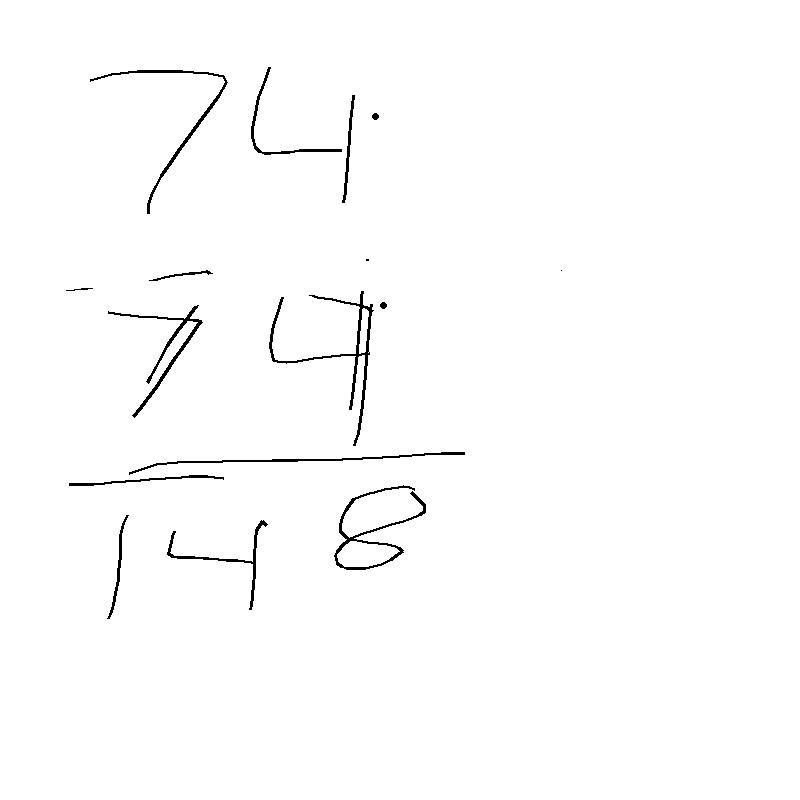 74
74
148